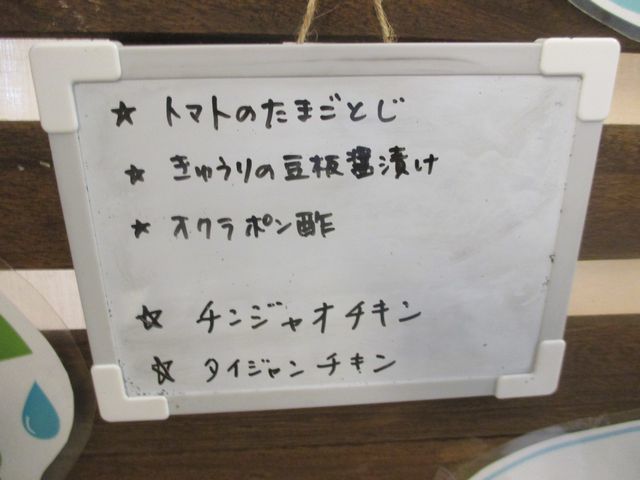 ☆ トマトのたまごとじ
☆ きゅうりの豆板醤漬け
☆ オクラポン酢
☆ チンジャオチキン
☆ タイジャンチキン